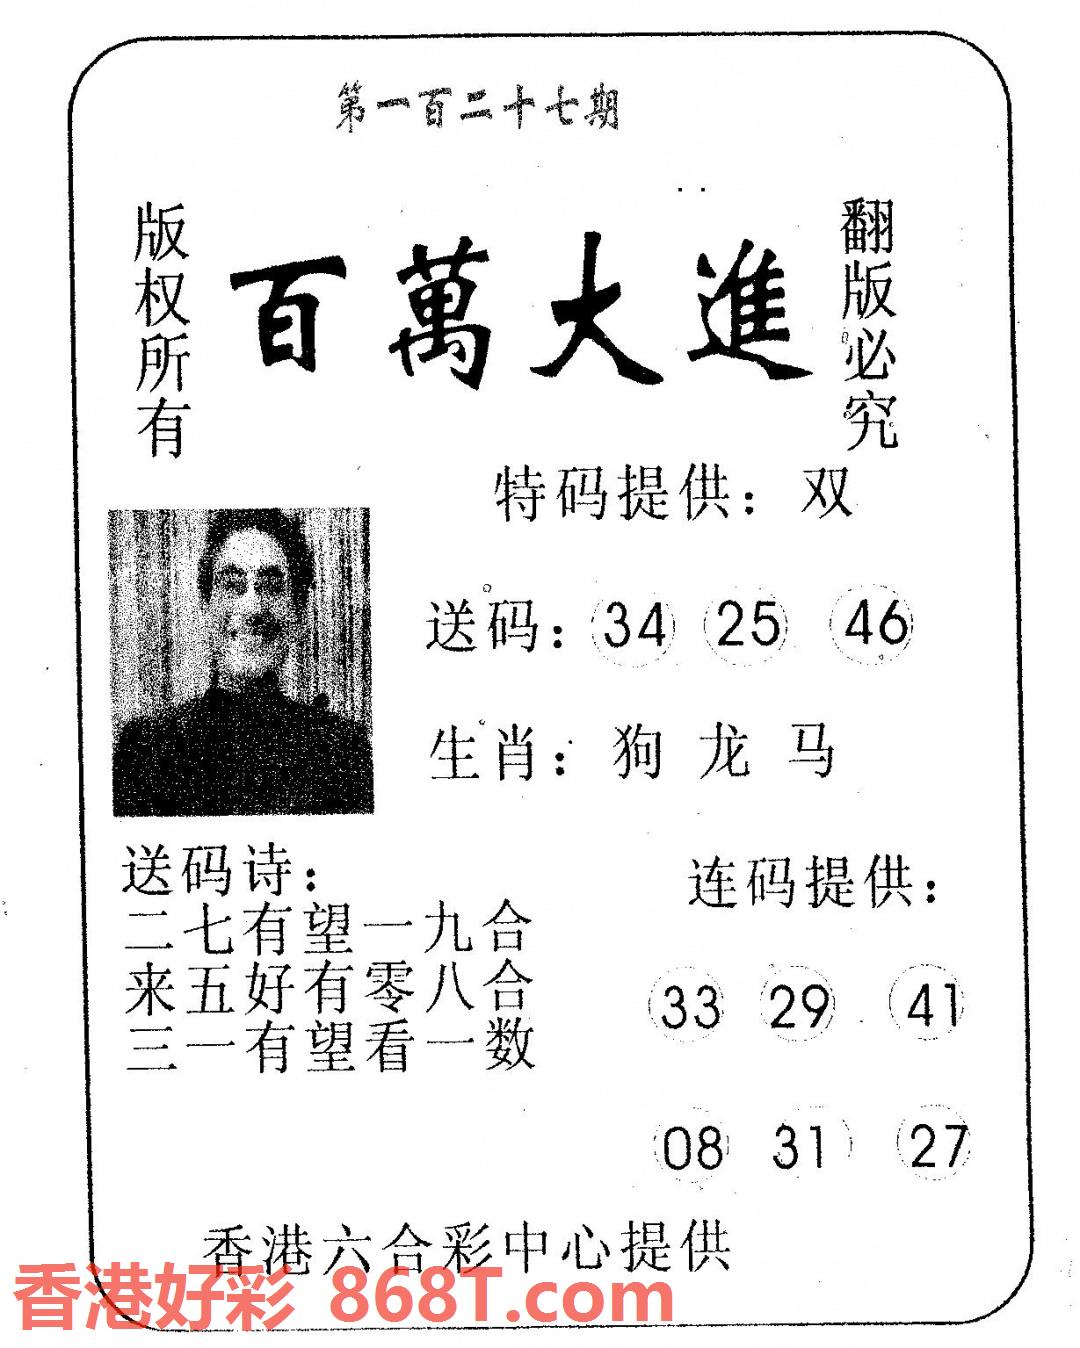 第一百二十七期
版权所有
百萬大進
翻版必究
特码提供：双
送码：34 25 46
生肖：狗 龙 马
送码诗：
二七有望一九合
来五好有零八合
三一有望看一数
连码提供：
33 29 41
08 31 27
香港六合彩中心提供
香港好彩 868T.com